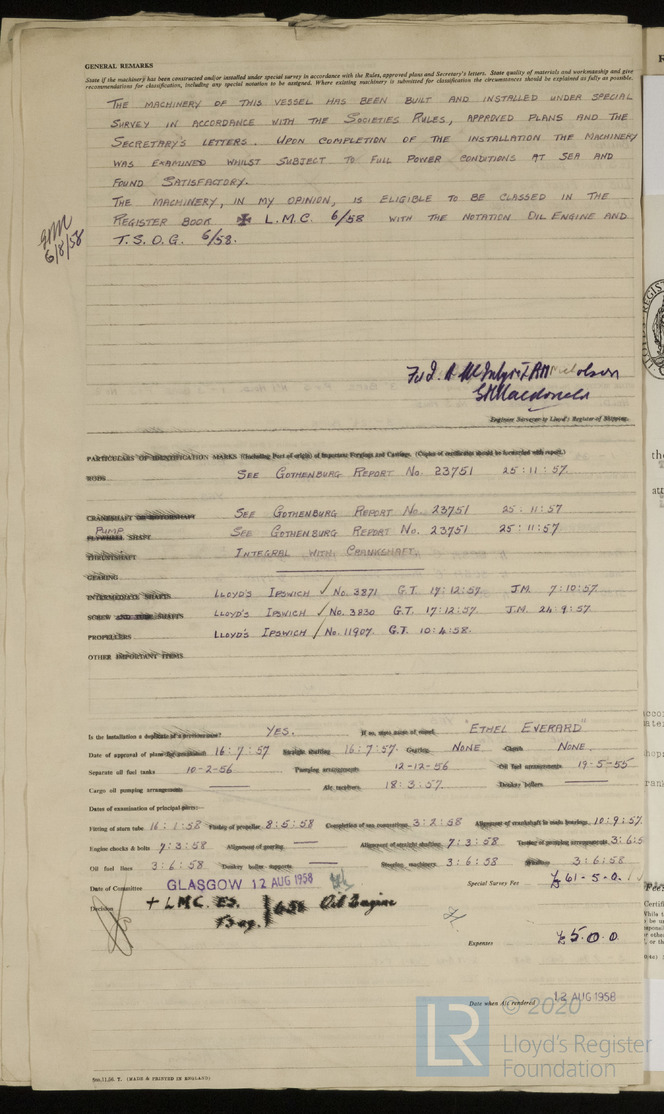 GENERAL REMARKS
State if the machinery has been constructed and/or installed under special survey in accordance with the Rules, approved plans and Secretary's letters. State quality of materials and workmanship and give
recommendations for classification, including any special notation to be assigned. Where existing machinery is submitted for classification the circumstances should be explained as fully as possible.
THE MACHINERY OF THIS VESSEL HAS BEEN BUILT AND INSTALLED UNDER SPECIAL
SURVEY IN ACCORDANCE WITH THE SOCIETIES RULES, APPROVED PLANS AND THE
SECRETARY'S LETTERS. UPON COMPLETION OF THE INSTALLATION THE MACHINERY
WAS EXAMINED WHILST SUBJECT TO FULL POWER CONDITIONS AT SEA AND
FOUND SATISFACTORY.
THE MACHINERY, IN MY OPINION, IS ELIGIBLE TO BE CLASSED IN THE
REGISTER BOOK ✠ L.M.C. 6/58 WITH THE NOTATION OIL ENGINE AND
T.S.O.G. 6/58.
6/8/58
Engineer Surveyor to Lloyd's Register of Shipping.
PARTICULARS OF IDENTIFICATION MARKS (Including Port of origin) of Important Forgings and Castings. (Copies of certificates should be forwarded with report.)
RODS SEE GOTHENBURG REPORT No. 23751 25:11:57.
CRANKSHAFT OR ROTORSHAFT SEE GOTHENBURG REPORT No. 23751 25:11:57
PUMP
FLYWHEEL SHAFT SEE GOTHENBURG REPORT No. 23751 25:11:57
THRUSTSHAFT INTEGRAL WITH CRANKSHAFT
GEARING
INTERMEDIATE SHAFTS LLOYD'S IPSWICH ✓ No. 3871 G.T. 17:12:57. J.M. 7:10:57.
SCREW AND TUBE SHAFTS LLOYD'S IPSWICH ✓ No. 3830 G.T. 17:12:57. J.N. 24:9:57.
PROPELLERS LLOYD'S IPSWICH ✓ No. 11907. G.T. 10:4:58.
OTHER IMPORTANT ITEMS
Is the installation a duplicate of a previous case? YES. If so, state name of vessel. "ETHEL EVERARD"
Date of approval of plans for crankshaft 16:7:57 Straight shafting 16:7:57. Gearing NONE Clutch NONE.
Separate oil fuel tanks 10-2-56 Pumping arrangements 12-12-56 Oil fuel arrangements 19-5-55
Cargo oil pumping arrangements Air receivers 18:3:57. Donkey boilers
Dates of examination of principal parts:—
Fitting of stern tube 16:1:58 Fitting of propeller 8:5:58 Completion of sea connections 3:2:58 Alignment of crankshaft in main bearings 10:9:57.
Engine chocks & bolts 7:3:58 Alignment of gearing Alignment of straight shafting 7:3:58 Testing of pumping arrangements 3:6:5
Oil fuel lines 3:6:58 Donkey boiler supports Steering machinery 3:6:58 Windlass 3:6:58
Date of Committee GLASGOW 12 AUG 1958 Special Survey Fee £61-5-0.
Decision + LMC. ES. 6.58 Oil Engine
Expenses £5.0.0
Date when A/c rendered 12 AUG 1958
5m.11.56. T. (MADE & PRINTED IN ENGLAND)
LR © 2020
Lloyd's Register
Foundation